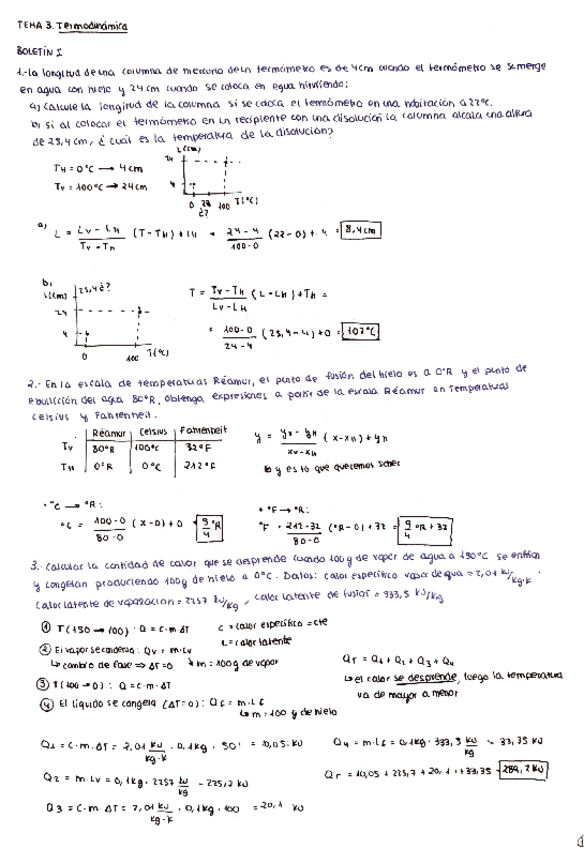 TEMA 3. Termodinámica
BOLETÍN I
1.- La longitud de una columna de mercurio de un termómetro es de 4cm cuando el termómetro se sumerge
en agua con hielo y 24 cm cuando se coloca en agua hirviendo:
a) Calcule la longitud de la columna si se coloca el termómetro en una habitación a 22ºC.
b) Si al colocar el termómetro en un recipiente con una disolución la columna alcanza una altura
de 25,4 cm, ¿cuál es la temperatura de la disolución?
TH = 0ºC → 4cm
TV = 100ºC → 24cm
L(cm)
24
4
0 22 100 T(ºC)
¿?
a) L = LV - LH / TV - TH (T - TH) + LH = 24 - 4 / 100 - 0 (22 - 0) + 4 = 8,4cm
b)
L(cm) 25,4 ¿?
24
4
0 100 T(ºC)
T = TV - TH / LV - LH (L - LH) + TH =
= 100 - 0 / 24 - 4 (25,4 - 4) + 0 = 107ºC
2.- En la escala de temperaturas Réamur, el punto de fusión del hielo es a 0ºR y el punto de
ebullición del agua 80ºR, obtenga expresiones a partir de la escala Réamur en temperaturas
Celsius y Fahrenheit.
Réamur Celsius Fahrenheit
TV 80ºR 100ºC 32ºF
TH 0ºR 0ºC 212ºF
y = yV - yH / xV - xH (x - xH) + yH
y es lo que queremos saber
· ºC → ºR:
ºC = 100 - 0 / 80 - 0 (x - 0) + 0 = 5/4 ºR
· ºF → ºR:
ºF = 212 - 32 / 80 - 0 (ºR - 0) + 32 = 9/4 ºR + 32
3. Calcular la cantidad de calor que se desprende cuando 100g de vapor de agua a 150ºC se enfrían
y congelan produciendo 100g de hielo a 0ºC. Datos: calor específico vapor de agua = 2,01 kJ/kg·K.
Calor latente de vaporización = 2257 kJ/kg, calor latente de fusión = 333,5 kJ/kg
① T(150 → 100) · Q = c·m·ΔT
c = calor específico = cte
L = calor latente
② El vapor se condensa: QV = m·LV
cambio de fase ⇒ ΔT=0
m = 100g de vapor
③ T(100 → 0): Q = c·m·ΔT
④ El líquido se congela (ΔT=0): QS = m·LS
m = 100 g de hielo
QT = Q1 + Q2 + Q3 + Q4
el calor se desprende, luego la temperatura
va de mayor a menor
Q1 = c·m·ΔT = 2,01 kJ/kg·K · 0,1kg · 50 = 10,05 kJ
Q4 = m·LS = 0,1kg · 333,5 kJ/kg = 33,35 kJ
Q2 = m·LV = 0,1kg · 2257 kJ/kg = 225,7 kJ
QT = 10,05 + 225,7 + 20,1 + 33,35 = 289,2 kJ
Q3 = c·m·ΔT = 2,01 kJ/kg·K · 0,1kg · 100 = 20,1 kJ